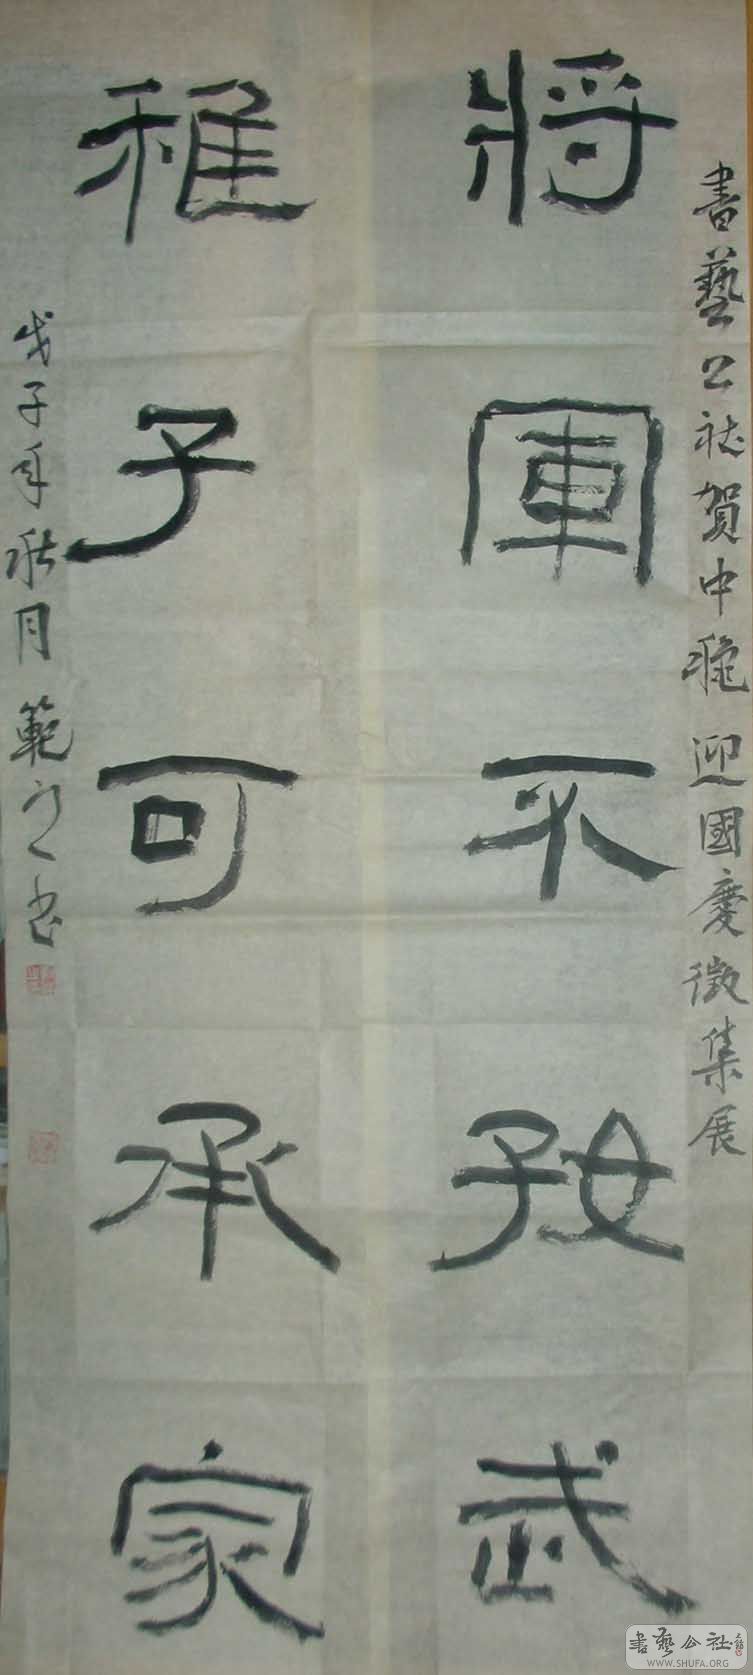 書藝公社賀中穐迎國慶徵集展
將軍不好武
稚子可承家
戊子年秋月範書
書藝公社
WWW.SHUFA.ORG